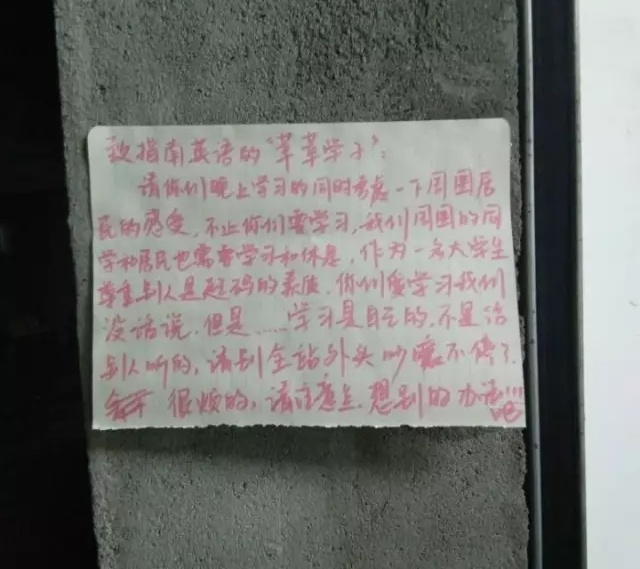 致指南英语的“莘莘学子”：
请你们晚上学习的同时考虑一下周围居
民的感受，不止你们要学习，我们周围的同
学和居民也需要学习和休息，作为一名大学生
尊重别人是起码的素质，你们爱学习我们
没话说，但是……学习是自己的，不是给
别人听的，请别全站外头吵嚷不停了，
很烦的，请注意点，想别的办法吧!!!